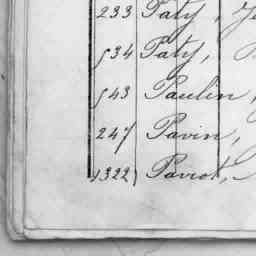 233 Paty,
534 Paty,
543 Paulin,
247 Pavin,
1322 Paviot,